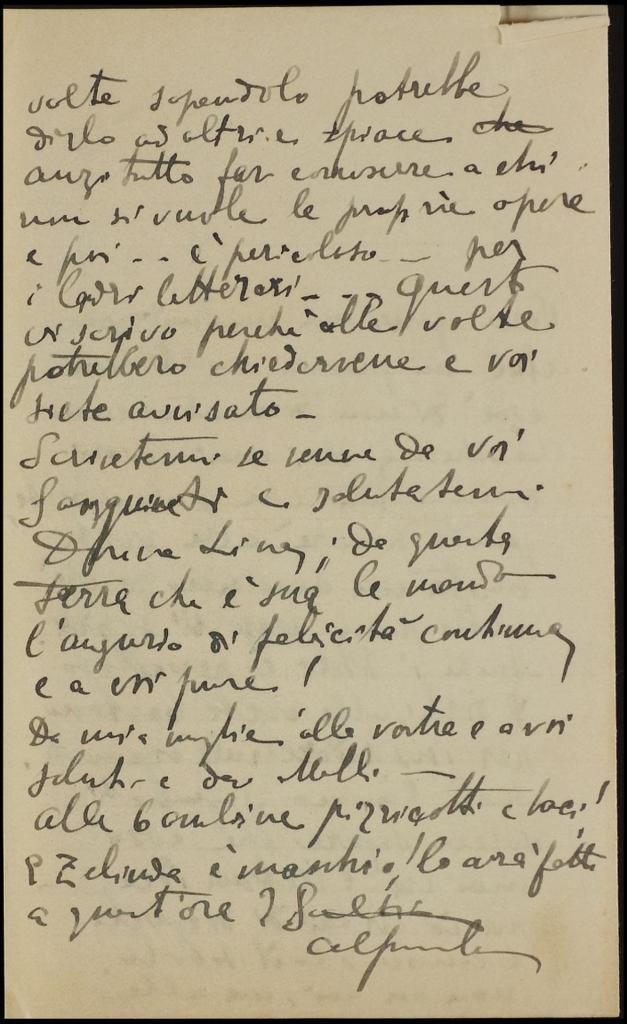 volte sapendolo potrebbe
dirlo ad altri e spiace che
anzi tutto far conoscere a chi
non si vuole le proprie opere
e poi -- è pericoloso -- per
i ladri letterari --- Questo
vi scrivo perchè alle volte
potrebbero chiedervene e voi
siete avvisato -
Scrivetemi se venne da voi
Sanguineti e salutatemi
Donna Lina; da questa
terra che è sua le mando
l'augurio di felicità continua
e a voi pure!
Da mia moglie alla vostra e a voi
saluti e da
alle bambine pizzicotti e baci!
E Zelinda è maschio! lo avrà fatto
a quest'ora?